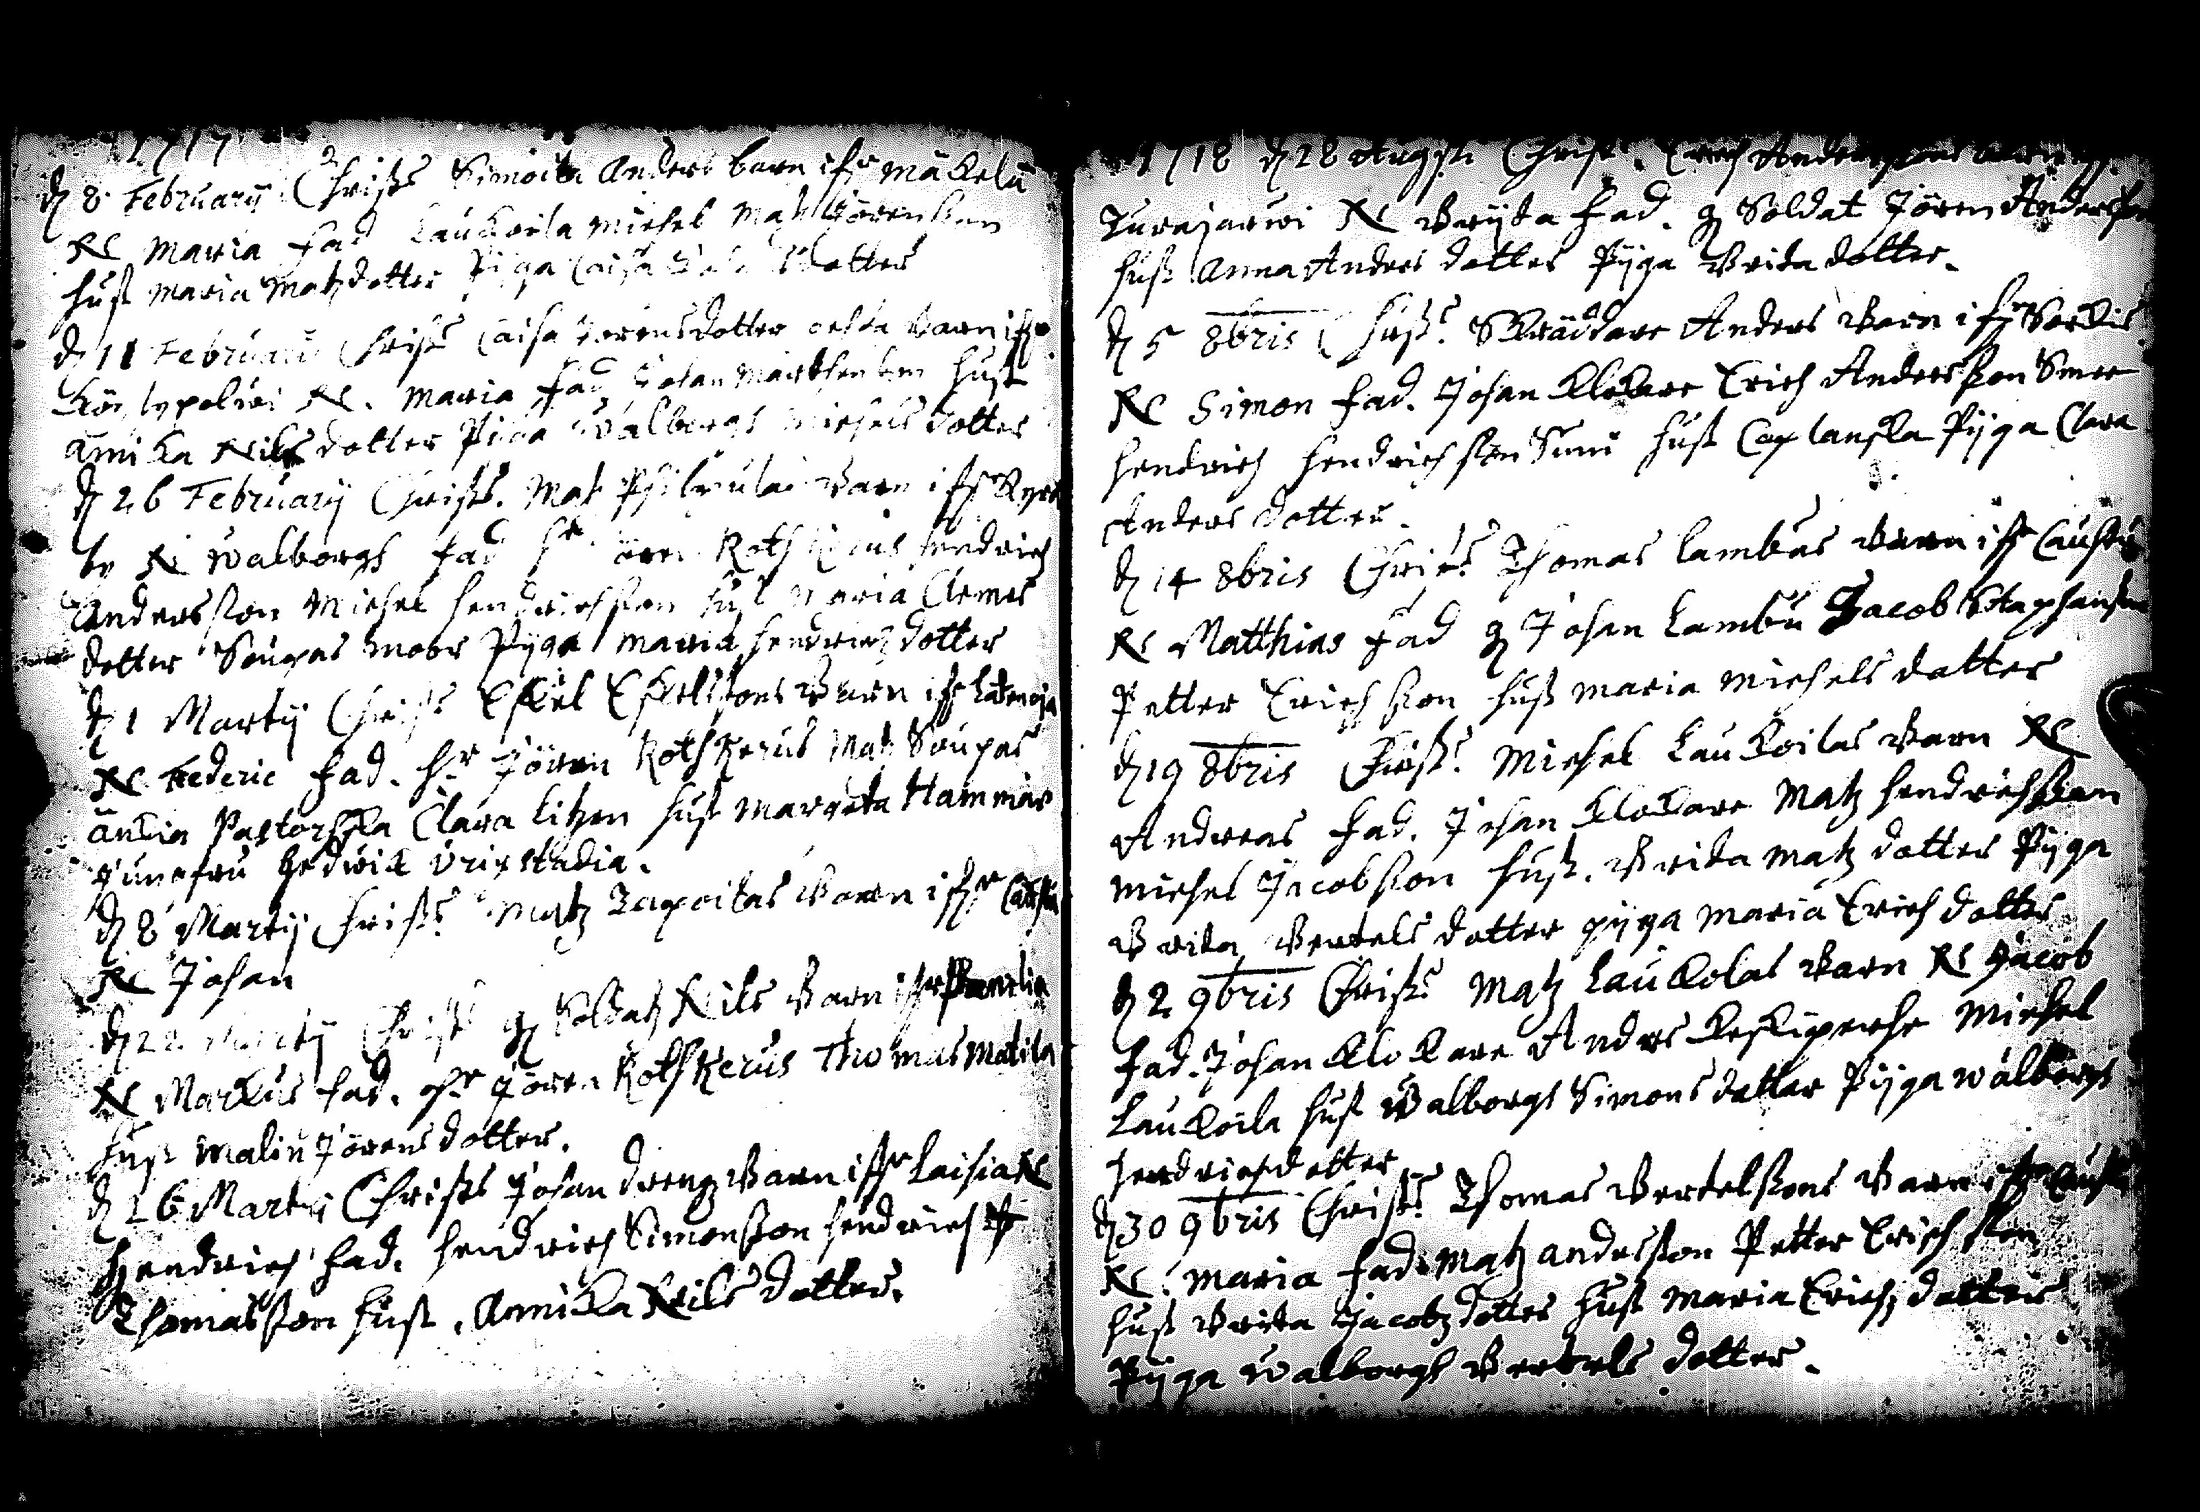 1717
d 8 February Christs Simoita Anders barn ifr Mäkelä
Nē Maria fad Laukoila Michel Matz Jörensson
hust Maria Matzdotter Piga Caisa dotter
d 11 February Christs Caisa Jörensdotter oehta barn ifr
Nē. Maria fad Johan Hust
Annika Nils dotter Piga Walborgs Michels dotter
d 26 February Christs. Mats barn ifr Kyrk
by Nē Walborgh fad hr Jören Rothkerius Hendrich
Andersson Michel Hendrichsson hust Maria Clemes
dotter Soupas moor Pyga Maria Hendrichz dotter
d 1 Martij Christs Eskel Eskelssons Barn ifr
Nē Federic fad. hr Jören Rothkerus Matz Soupas
änkia Pastorska Clara Litzen hust Margeta Hammar
Junfru Hedwik Urixstadia.
d 8 Martij Christs Matz Tapoilas barn ifr
Nē Johan
d 22 Martij Christs g Soldatz Nils Barn ifr
Nē Markus fad. hr Jören Rothkerus Thomas Matila
hust Malin Jörensdotter.
d 26 Martij Christs Johan drengz Barn ifr Laisia Nē
Hendrich fad. Hendrich Simonsson Hendrich
Thomasson hust. Annika Nils dotter.
1718 d 28 Augsti Christs. Erich Anderssons barn
Turajarwi Nē Bryta fad. g Soldat Jören Andersson
hust Anna Anders dotter Pyga Brita dotter.
d 5 8bris Christs. Skräddare Anders Barn ifr Sorkis
Nē Simon fad. Johan Klokare Erich Andersson Smee
Hendrich Hendrichsson Suni hust Caplanska Pyga Clara
Anders dotter.
d 14 8bris Christs Thomas Lambus Barn ifr Cauhtu
Nē Matthias fad g Johan Lambu Jacob Staphansson
Petter Erichsson hust Maria Michels dotter
d 19 8bris Christs. Michel Laukoilas Barn Nē
Andreas fad. Johan Klokare Matz Hendrichsson
Michel Jacobsson hust. Brita Matz dotter Pyga
Brita Bertels dotter pyga Maria Erich dotter
d 2 9bris Christs Matz Laukolas Barn Nē Jacob
fad. Johan Klokare Anders Keskiperhe Michel
Laukoila hust Walborgs Simons dotter Pyga Walborgs
Hendrichsdotter
d 30 9bris Christs Thomas Bertelssons Barn ifr
Nē. Maria fad. Matz Andersson Petter Erichsson
hust Brita Jacobz dotter hust Maria Erichz dotter
Pyga Walborgh Bertels dotter.